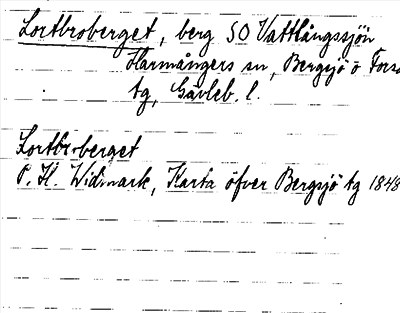 Lortbroberget, berg SO Vattlångssjön
Harmångers sn, Bergsjö o Forsa
tg, Gävleb. l.
Lortbroberget
P. H. Widmark, Karta öfver Bergsjö tg 1848